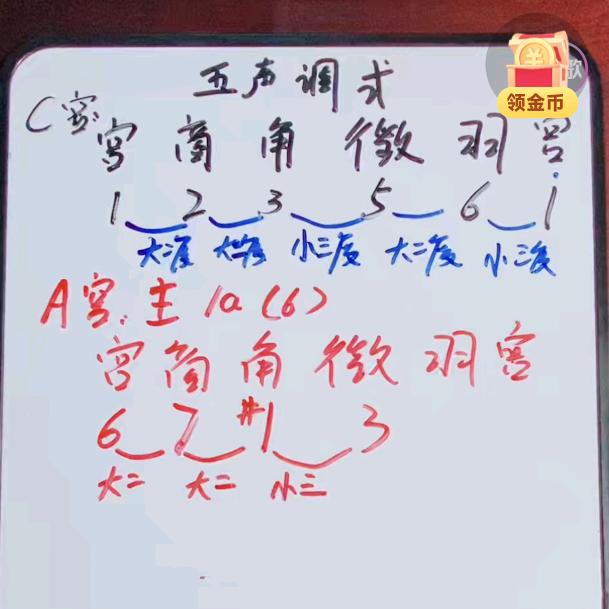 五声调式
歌
领金币
C宫:
宫 商 角 徵 羽 宫
1 2 3 5 6 i
大二度 大二度 小三度 大二度 小三度
A宫: 主 la (6)
宫 商 角 徵 羽 宫
6 7 #1 3
大二 大二 小三